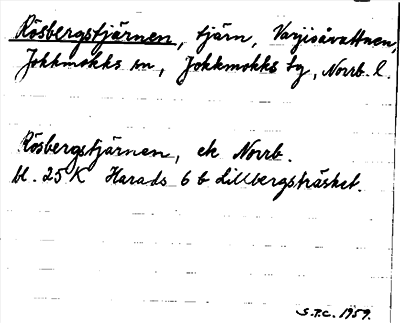 Rösbergstjärnen, tjärn, Varjisåvattnen,
Jokkmokks sn, Jokkmokks tg, Norrb. l.
Rösbergstjärnen, ek Norrb.
bl. 25 K Harads 6 b Lillbergsträsket.
S.P.C. 1959.